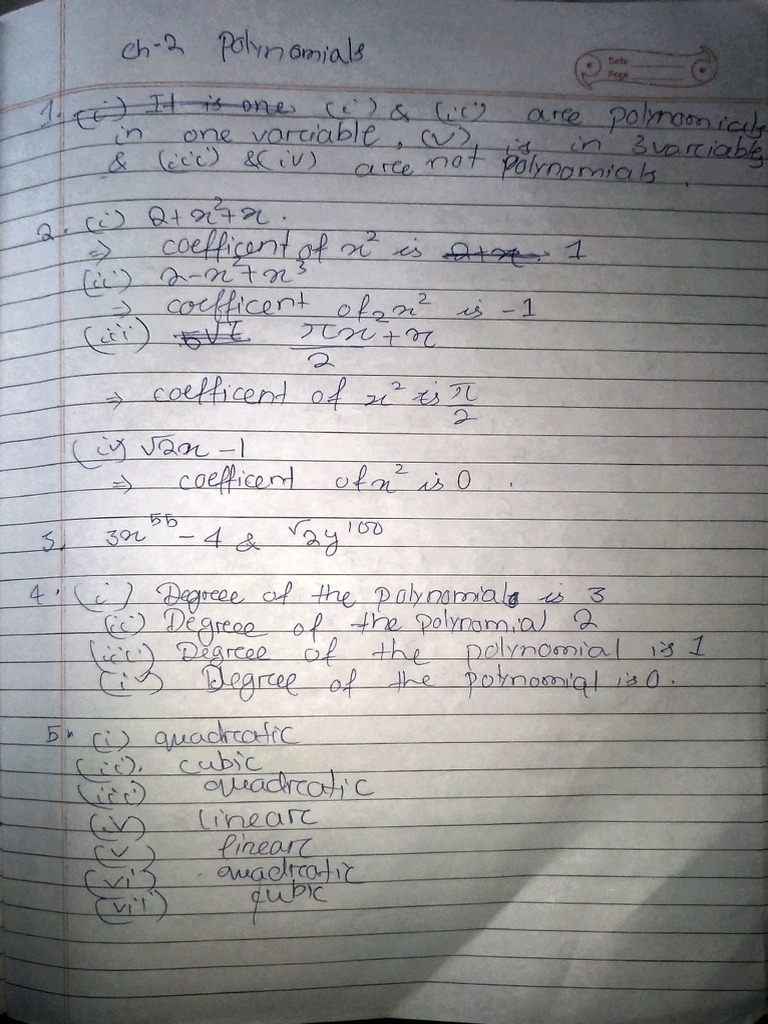 ch-2 Polynomials
Date
Page
1. (i) It is one (i) & (ii) are polynomials
in one variable, (v) is in 3 variable
& (iii) & (iv) are not polynomials.
2. (i) 2+x²+x.
⇒ coefficent of x² is 2+x. 1
(ii) 2-x²+x³
⇒ coefficent of x² is -1
(iii) πx²/2 + x
⇒ coefficent of x² is π/2
(iv) √2x -1
⇒ coefficent of x² is 0 .
3. 3x⁵⁵ - 4 & √2y¹⁰⁰
4. (i) Degree of the polynomial is 3
(ii) Degree of the polynomial 2
(iii) Degree of the polynomial is 1
(iv) Degree of the polynomial is 0.
5. (i) quadratic
(ii). cubic
(iii) quadratic
(iv) linear
(v) linear
(vi) quadratic
(vii) cubic